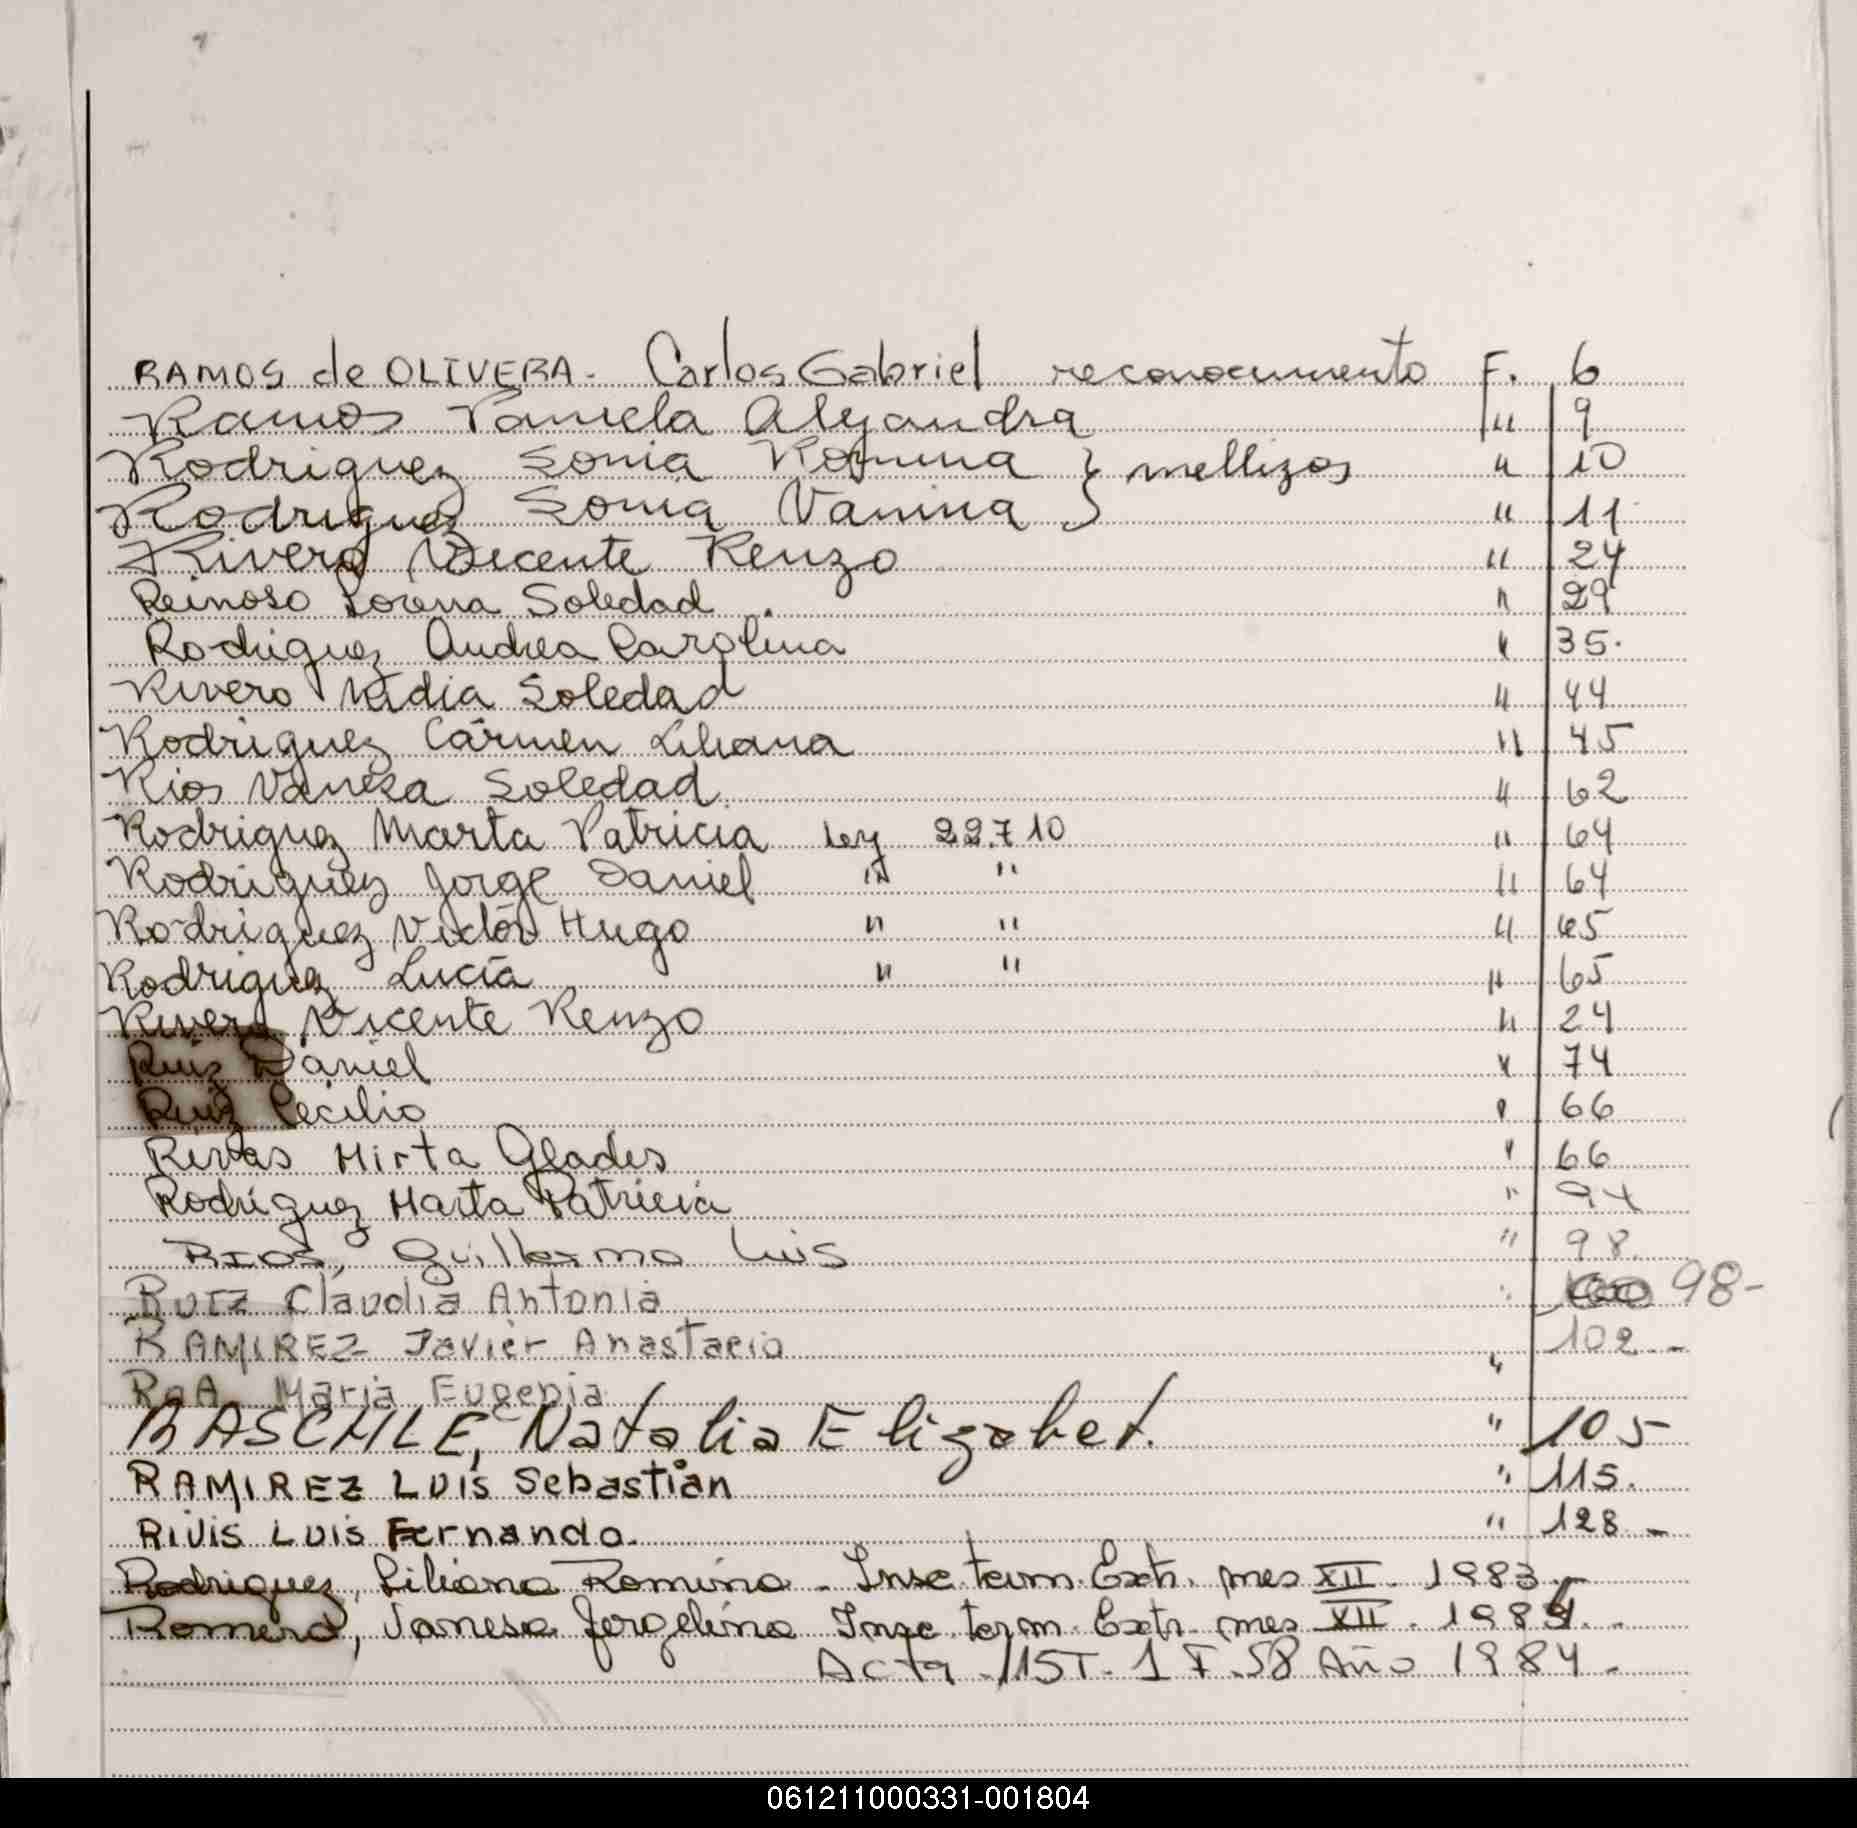 RAMOS de OLIVERA. Carlos Gabriel reconocimiento F. 6
Ramos Pamela Alejandra " 9
Rodriguez Sonia Romina } mellizos " 10
Rodriguez Sonia Vanina } " 11
Rivero Vicente Renzo " 24
Reinoso Lorena Soledad . " 29
Rodriguez Andrea Carolina " 35.
Rivero Nidia Soledad " 44
Rodriguez Cármen Liliana " 45
Rios Vanesa Soledad " 62
Rodriguez Marta Patricia ley 22.710 " 64
Rodriguez Jorge Daniel " " " 64
Rodriguez Victór Hugo " " " 65
Rodriguez Lucía " " " 65
Rivero Vicente Renzo " 24
Ruiz Daniel " 74
Ruiz Cecilio " 66
Rivas Mirta Glades " 66
Rodriguez Marta Patricia "
RIOS, Guillermo Luis " 98.
RUIZ Claudia Antonia " 98-
RAMIREZ Javier Anastacio " 102.-
RoA Maria Eugenia
RASCHLE, Natalia Elizabet. " 105
RAMIREZ LUIS Sebastian " 115.
RIVIS LUIS Fernando. " 128.-
Rodriguez, Liliana Romina - Insc. term. Extr. mes XII. 1983.-
Romero, Vanesa Jorgelina Insc. term. Extr. mes XII. 1984.-
Acta 115 T. 1 F. 58 Año 1984.-
061211000331-001804